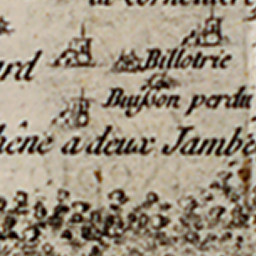 Billotrie
ard
Buisson perdu
hêne a deux Jambe